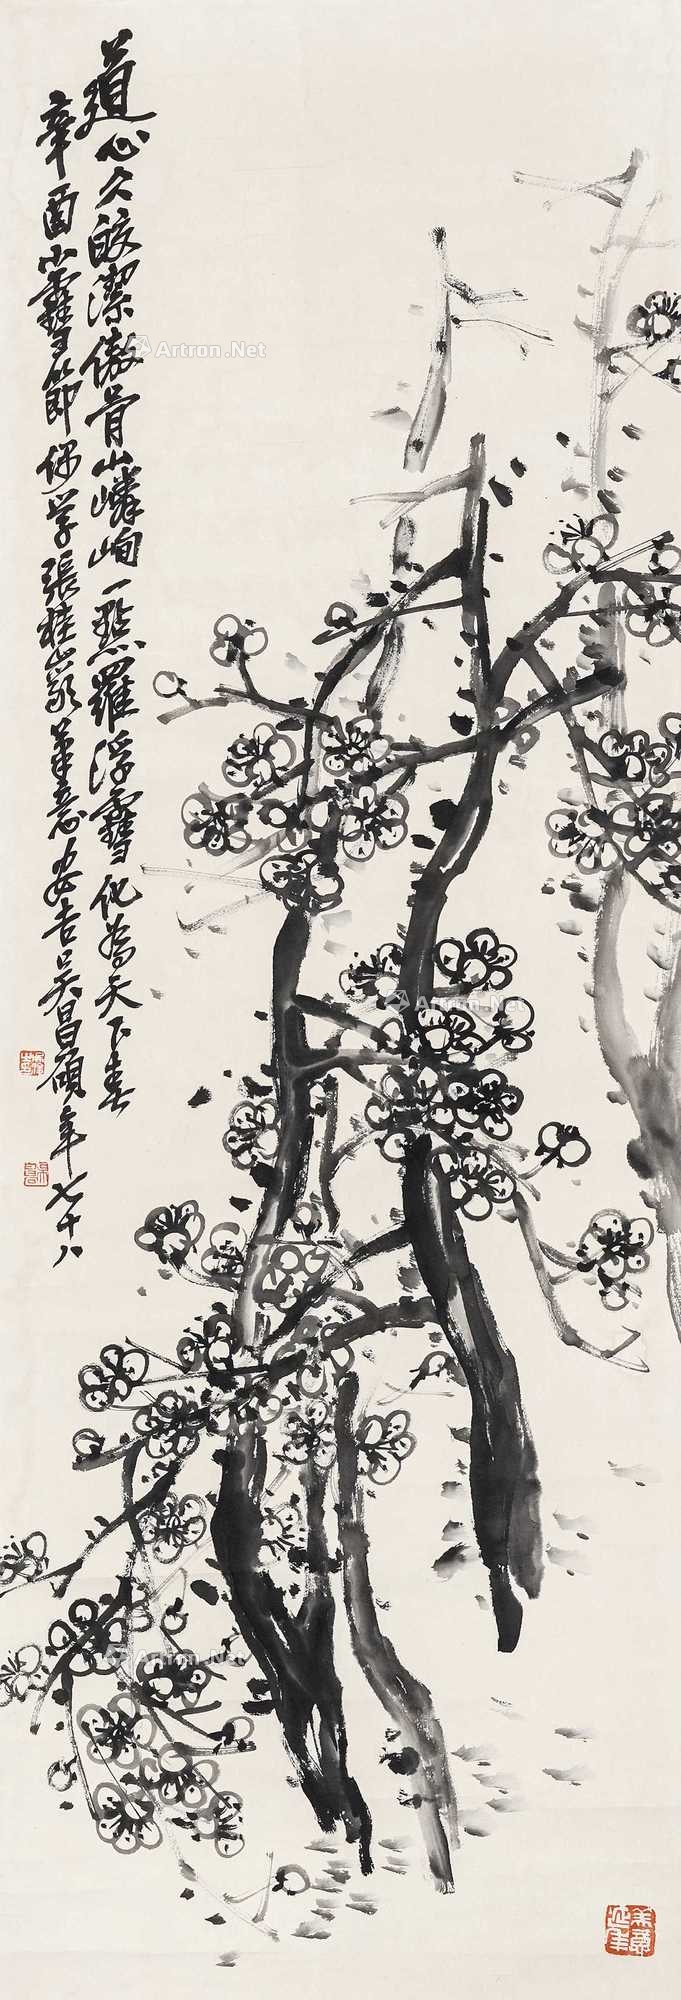 道心久皎潔傲骨山嶙峋一點羅浮雪化為天下春
辛酉小雪節偶學張桂巖筆意安吉吳昌碩年七十八
Artron.Net
Artron.Net
Artron.Net